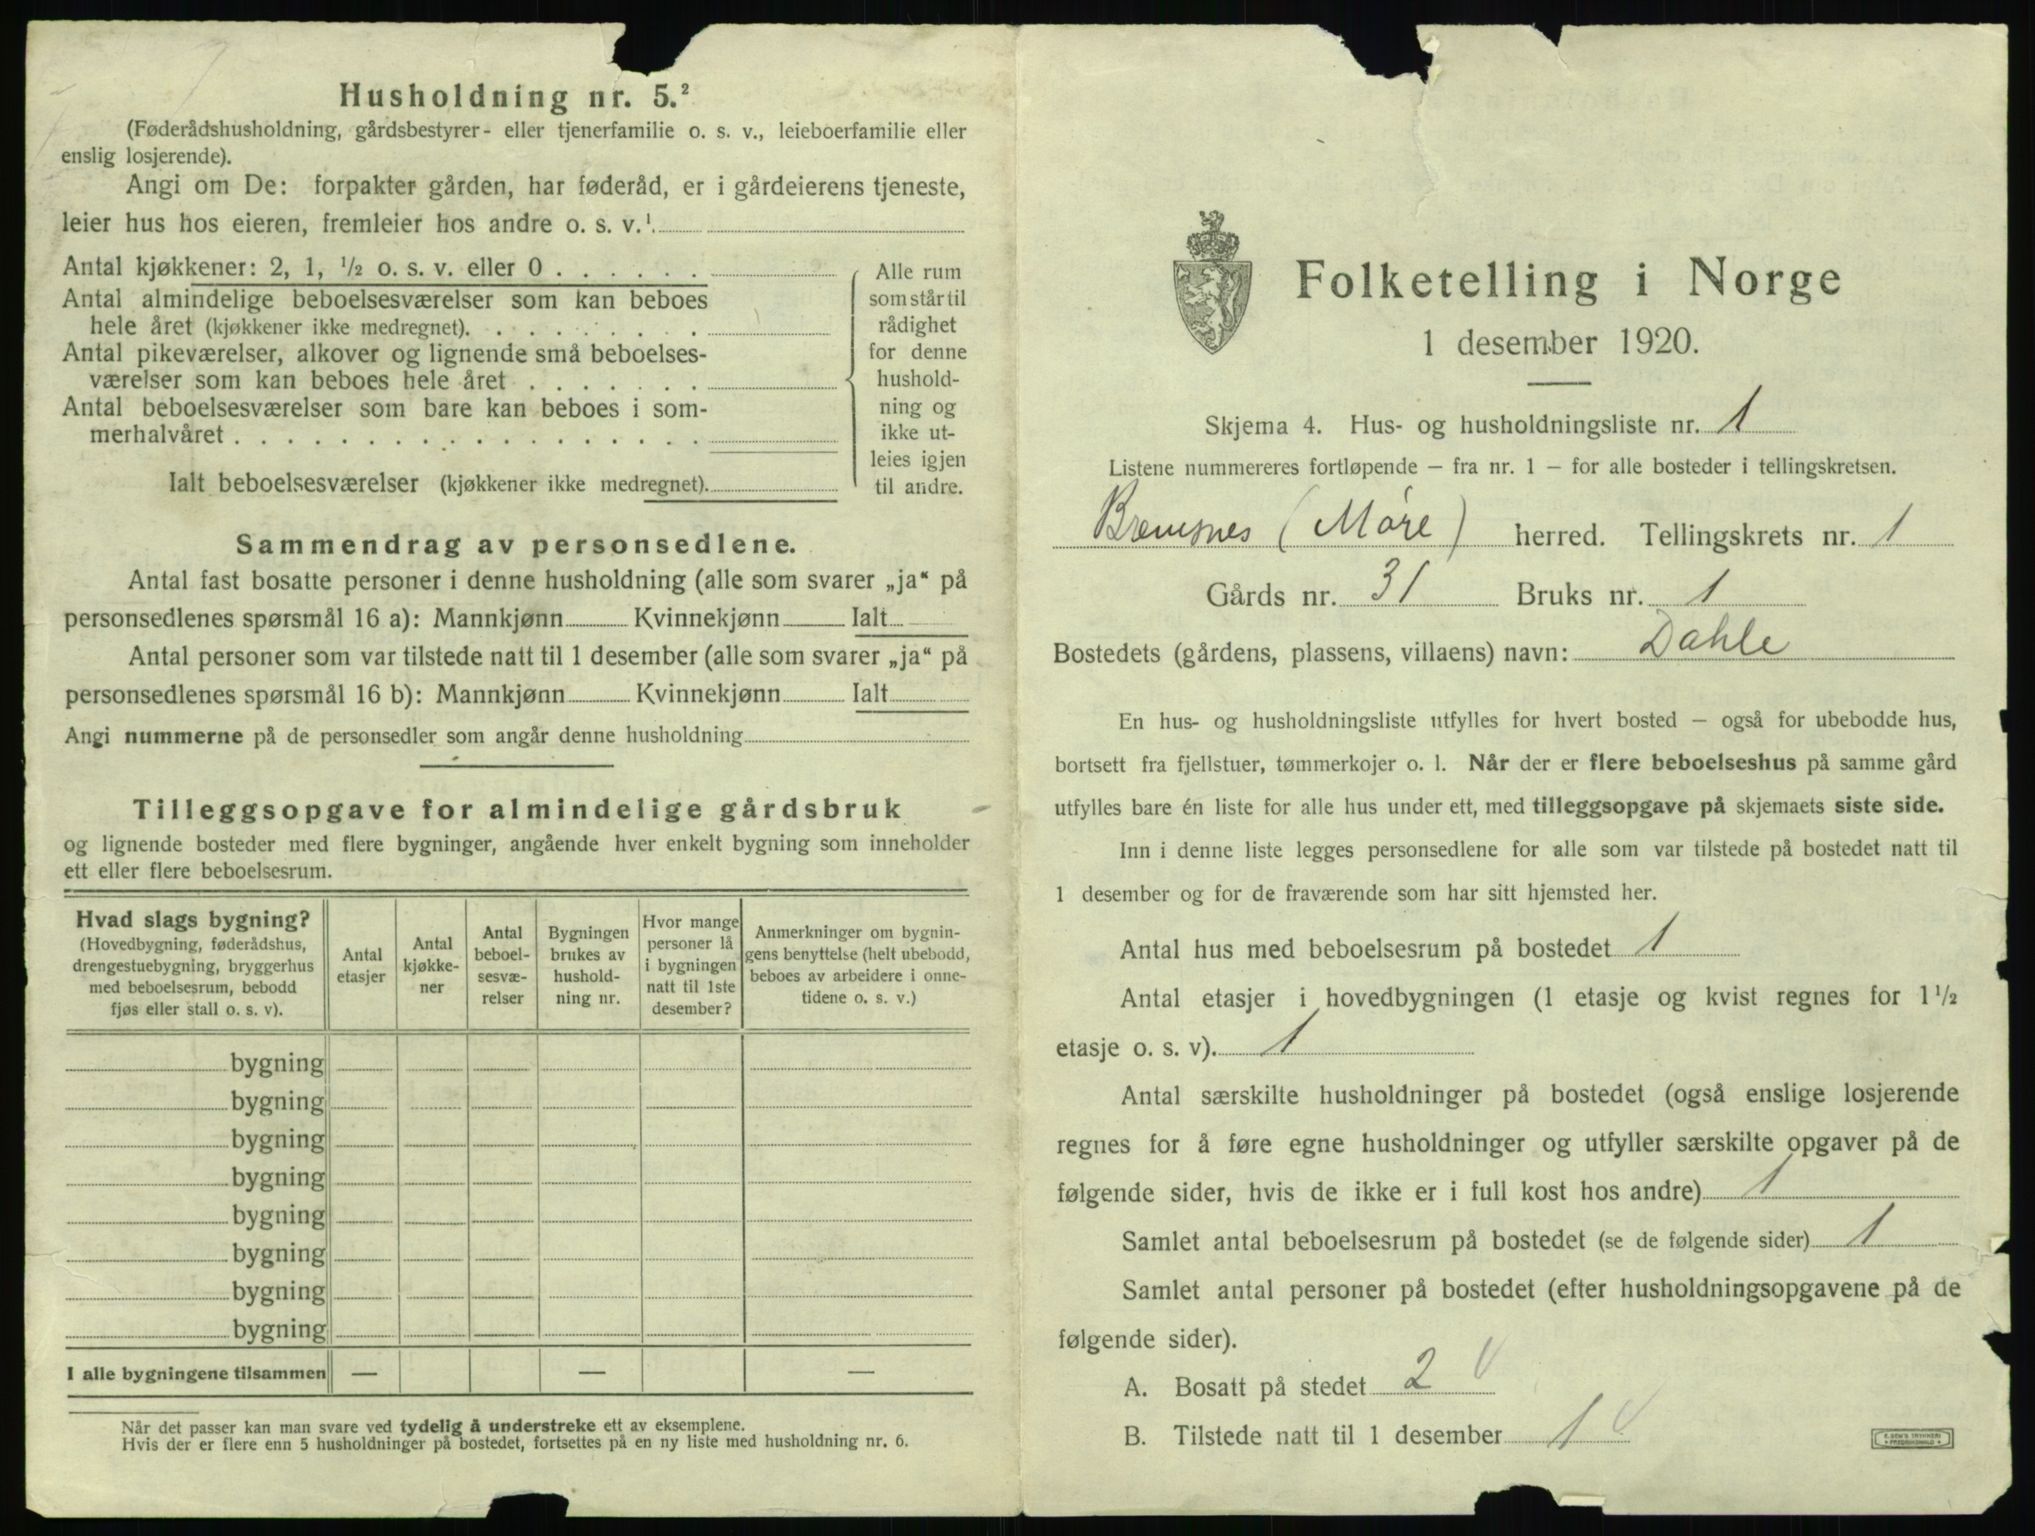 Husholdning nr. 5.²
(Føderådshusholdning, gårdsbestyrer- eller tjenerfamilie o. s. v., leieboerfamilie eller
enslig losjerende).
Angi om De: forpakter gården, har føderåd, er i gårdeierens tjeneste,
leier hus hos eieren, fremleier hos andre o. s. v.¹
Antal kjøkkener: 2, 1, ½ o. s. v. eller 0 . . . . . .
Antal almindelige beboelsesværelser som kan beboes
hele året (kjøkkener ikke medregnet). . . . . . . . .
Antal pikeværelser, alkover og lignende små beboelses-
værelser som kan beboes hele året . . . . . . .
Antal beboelsesværelser som bare kan beboes i som-
merhalvåret . . . . . . . . . . . . . . . . . .
Ialt beboelsesværelser (kjøkkener ikke medregnet).
Alle rum
som står til
rådighet
for denne
hushold-
ning og
ikke ut-
leies igjen
til andre.
Sammendrag av personsedlene.
Antal fast bosatte personer i denne husholdning (alle som svarer „ja“ på
personsedlenes spørsmål 16 a): Mannkjønn Kvinnekjønn Ialt
Antal personer som var tilstede natt til 1 desember (alle som svarer „ja“ på
personsedlenes spørsmål 16 b): Mannkjønn Kvinnekjønn Ialt
Angi nummerne på de personsedler som angår denne husholdning
Tilleggsopgave for almindelige gårdsbruk
og lignende bosteder med flere bygninger, angående hver enkelt bygning som inneholder
ett eller flere beboelsesrum.
Hvad slags bygning?
(Hovedbygning, føderådshus,
drengestuebygning, bryggerhus
med beboelsesrum, bebodd
fjøs eller stall o. s. v).
Antal
etasjer
Antal
kjøkke-
ner
Antal
beboel-
sesvæ-
relser
Bygningen
brukes av
hushold-
ning nr.
Hvor mange
personer lå
i bygningen
natt til 1ste
desember?
Anmerkninger om bygnin-
gens benyttelse (helt ubebodd,
beboes av arbeidere i onne-
tidene o. s. v.)
bygning
bygning
bygning
bygning
bygning
bygning
bygning
bygning
I alle bygningene tilsammen — — —
Når det passer kan man svare ved tydelig å understreke ett av eksemplene.
Hvis der er flere enn 5 husholdninger på bostedet, fortsettes på en ny liste med husholdning nr. 6.
Folketelling i Norge
1 desember 1920.
Skjema 4. Hus- og husholdningsliste nr. 1
Listene nummereres fortløpende — fra nr. 1 — for alle bosteder i tellingskretsen.
Bremsnes (Møre) herred. Tellingskrets nr. 1
Gårds nr. 31 Bruks nr. 1
Bostedets (gårdens, plassens, villaens) navn: Dahle
En hus- og husholdningsliste utfylles for hvert bosted — også for ubebodde hus,
bortsett fra fjellstuer, tømmerkojer o. l. Når der er flere beboelseshus på samme gård
utfylles bare én liste for alle hus under ett, med tilleggsopgave på skjemaets siste side.
Inn i denne liste legges personsedlene for alle som var tilstede på bostedet natt til
1 desember og for de fraværende som har sitt hjemsted her.
Antal hus med beboelsesrum på bostedet 1
Antal etasjer i hovedbygningen (1 etasje og kvist regnes for 1½
etasje o. s. v). 1
Antal særskilte husholdninger på bostedet (også enslige losjerende
regnes for å føre egne husholdninger og utfyller særskilte opgaver på de
følgende sider, hvis de ikke er i full kost hos andre) 1
Samlet antal beboelsesrum på bostedet (se de følgende sider) 1
Samlet antal personer på bostedet (efter husholdningsopgavene på de
følgende sider).
A. Bosatt på stedet 2
B. Tilstede natt til 1 desember 1